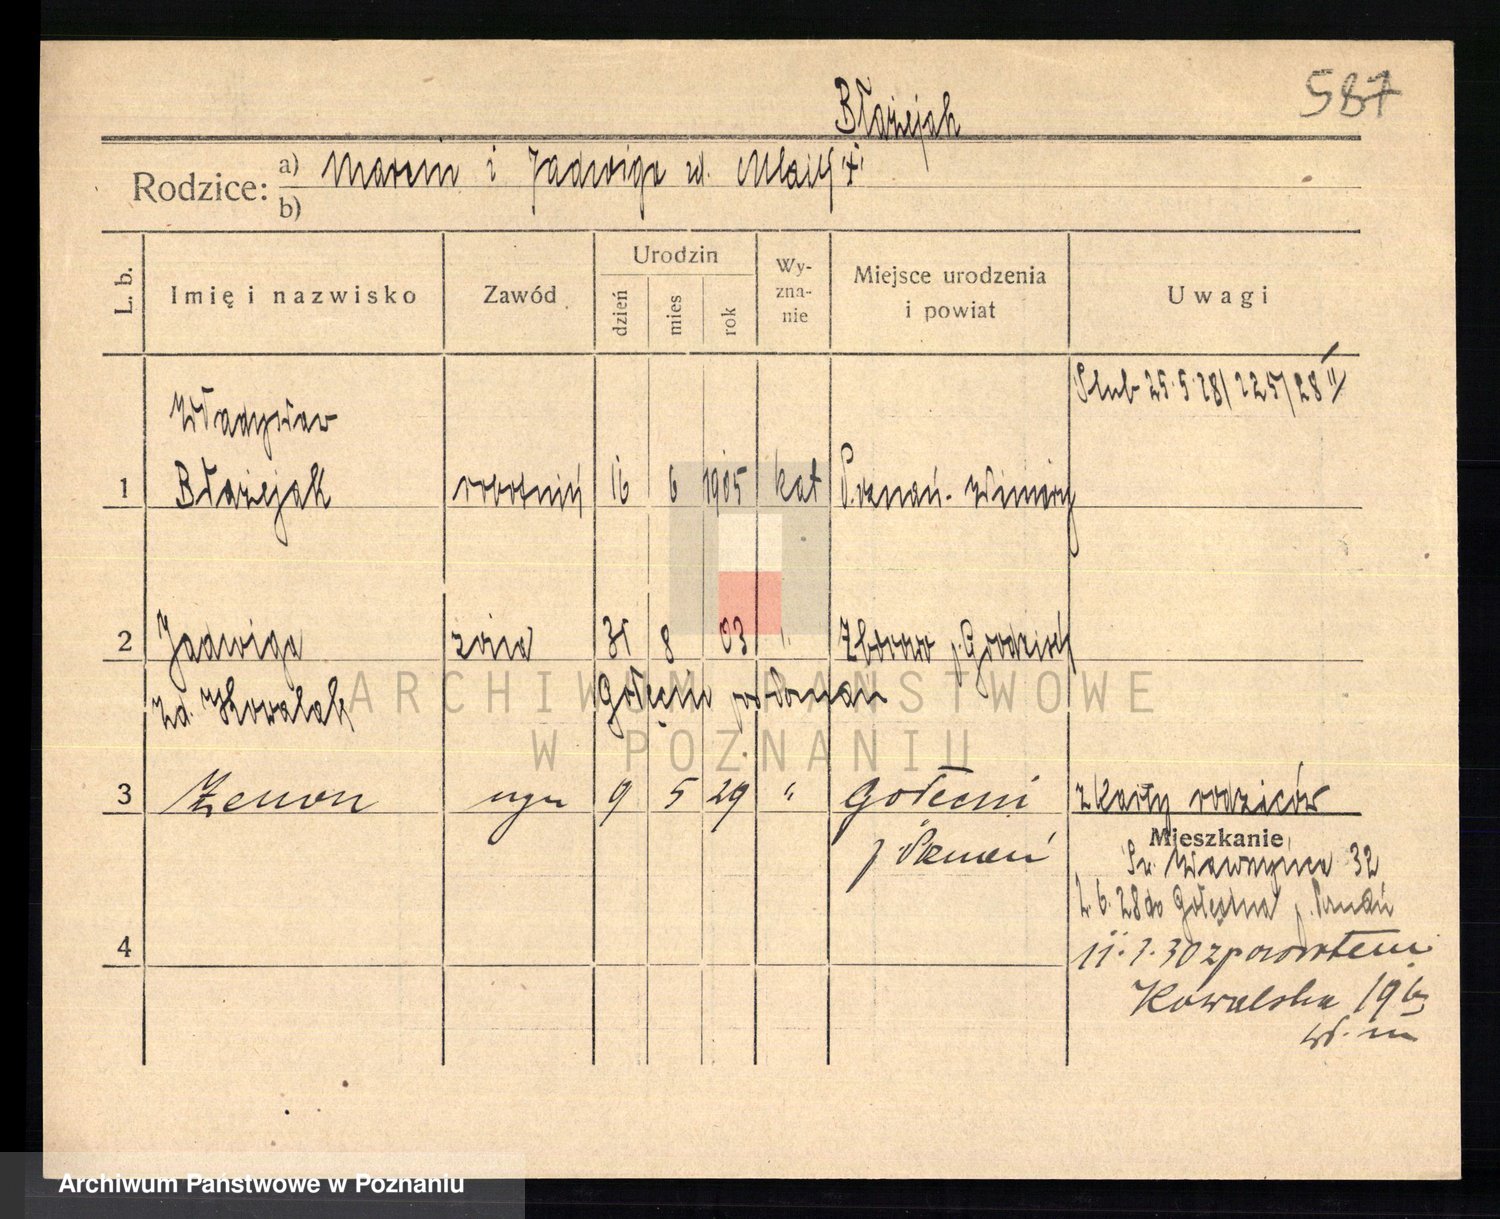 587
Błażejak
Rodzice: a) Marcin i Jadwiga zd.
b)
L. b. Imię i nazwisko Zawód Urodzin dzień mies rok Wy-zna-nie Miejsce urodzenia i powiat Uwagi
Ślub 25.5.28/225/28 II
Władysław
1 Błażejak robotnik 16 6 1905 kat Poznań - Winiary
2 Jadwiga żona 31 8 03 " Zborowo p. Grodzisk
zd. Kowalak Golęcin p. Poznań
3 Zenon syn 9 5 29 " Golęcin z karty rodziców
p. Poznań
Mieszkanie
Św. Wawrzyńca 32
2.6.28 do Golęcina p. Poznań
4
11.7.30 z powrotem
Kowalska 19
ARCHIWUM PAŃSTWOWE
W POZNANIU
Archiwum Państwowe w Poznaniu